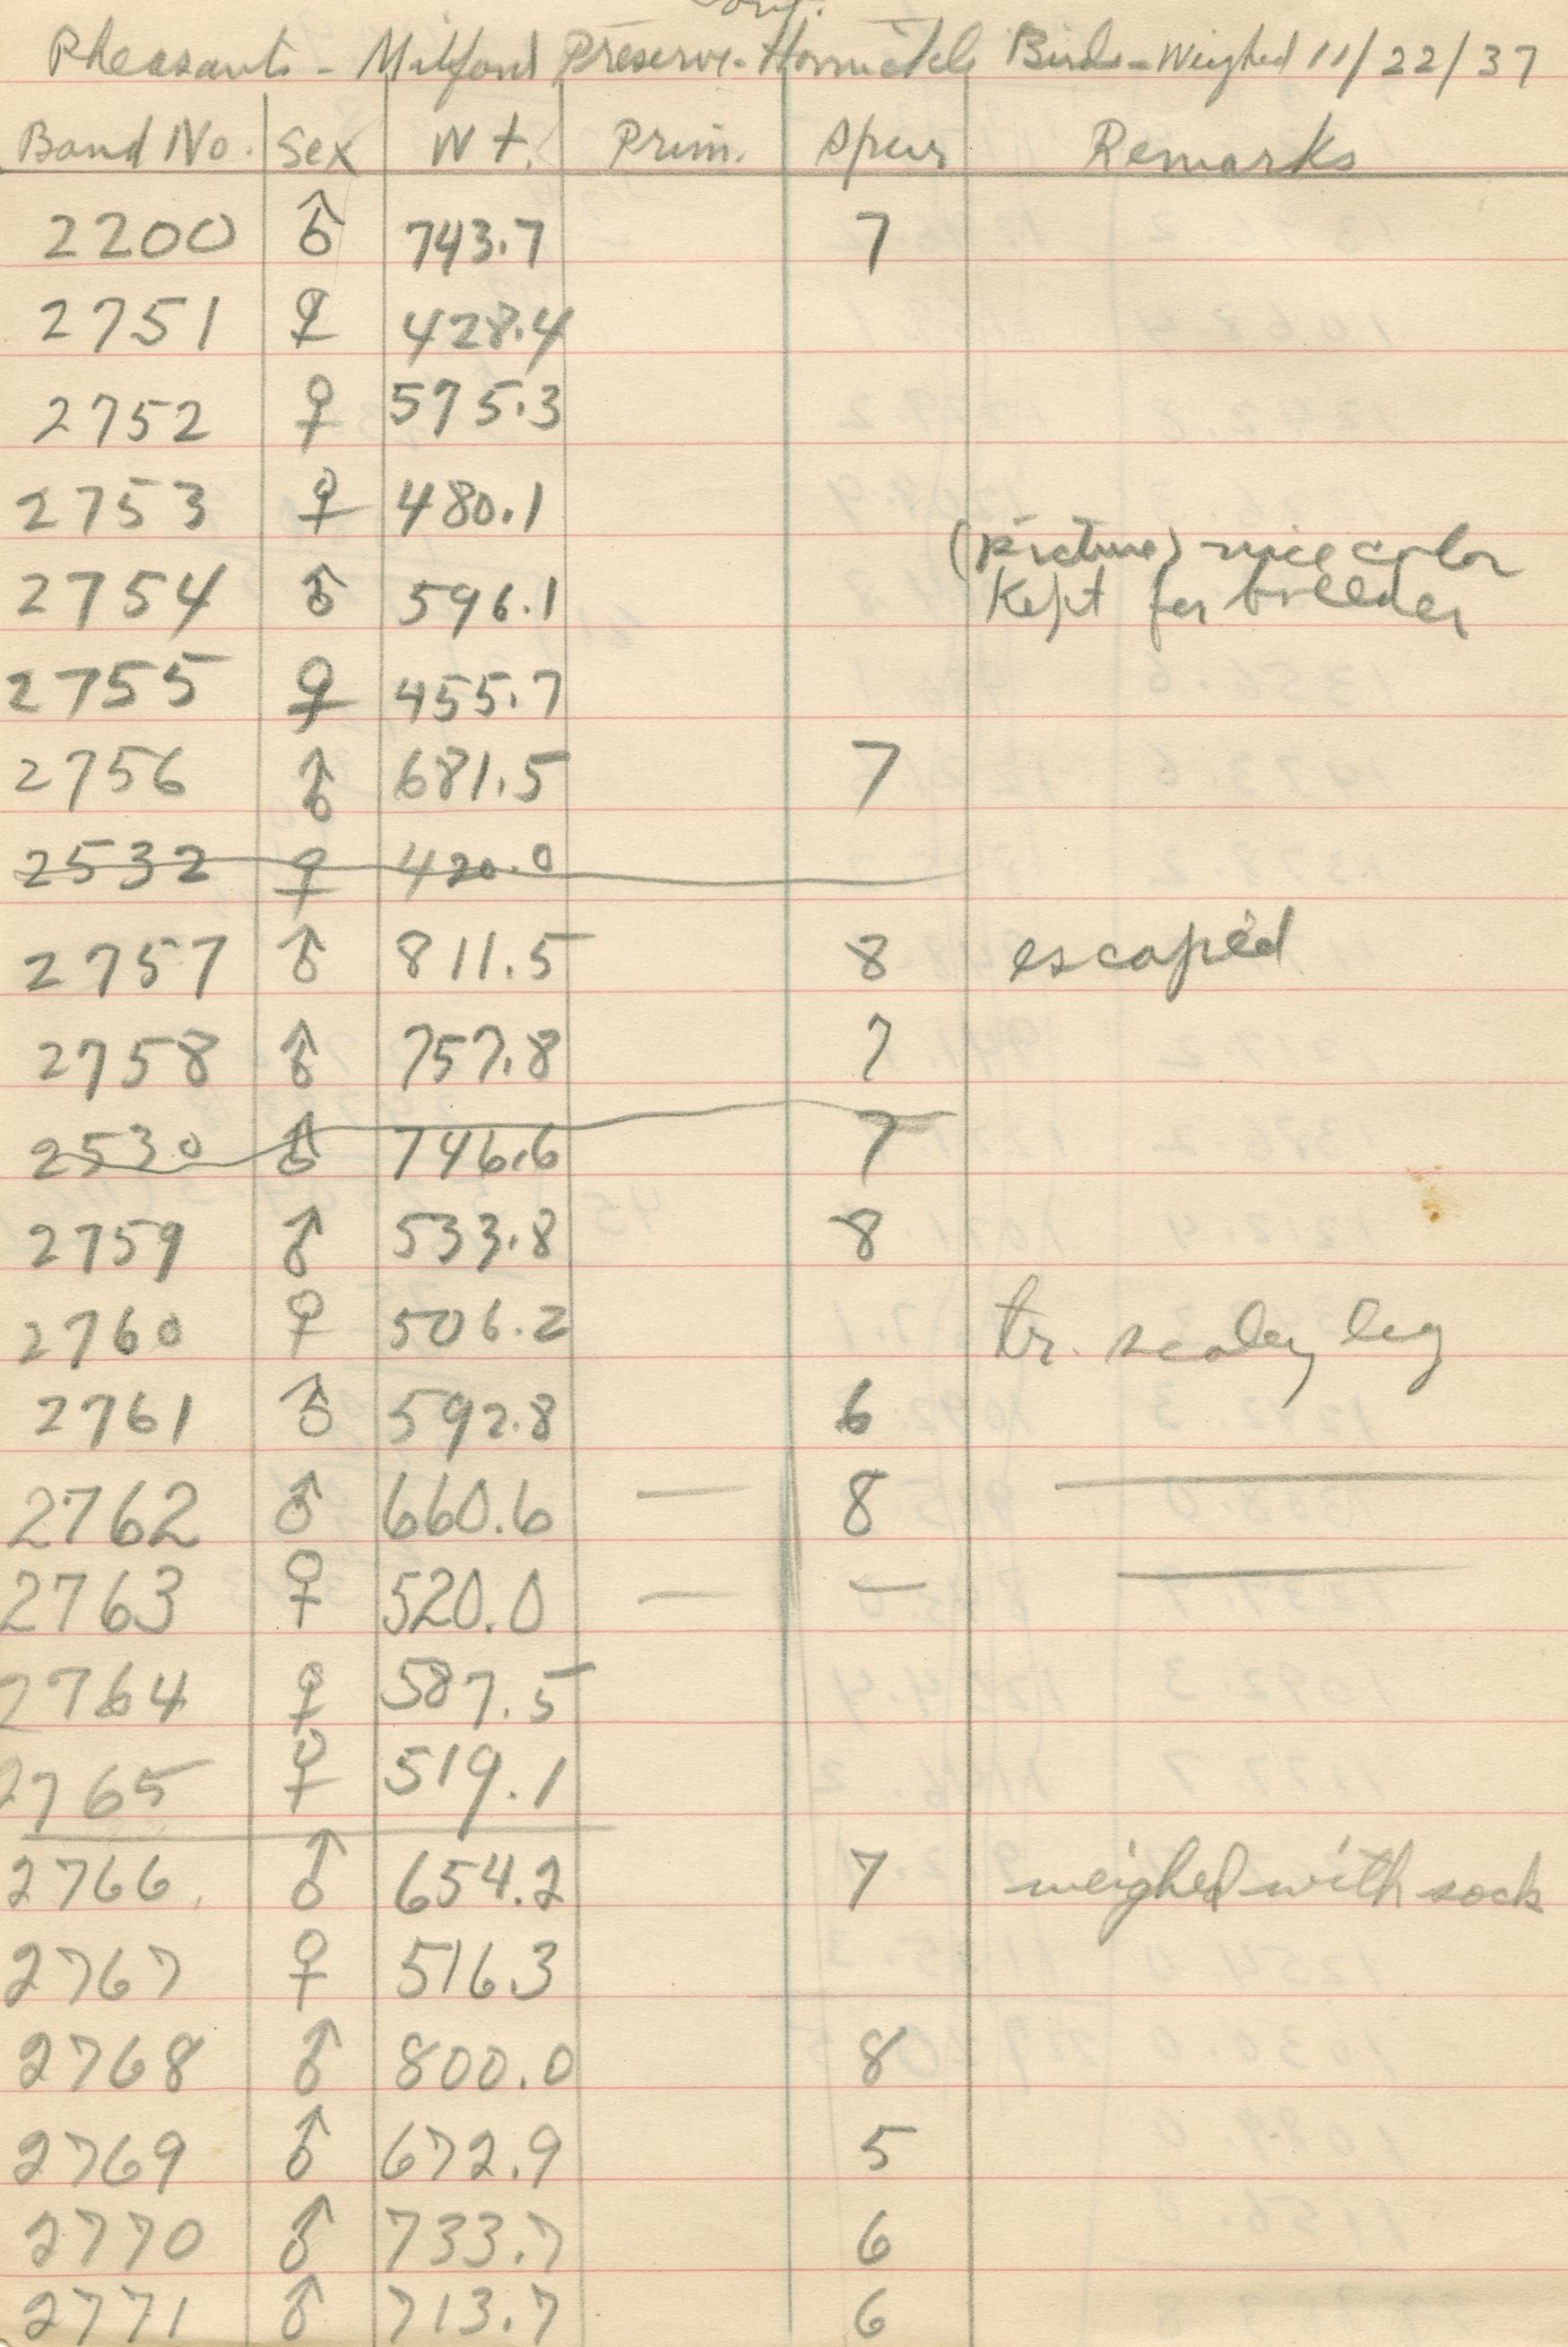 Pheasants - Milford Preserve - Birds - Weighed 11/22/37
Band No. Sex Wt. Prim. Spur Remarks
2200 ♂ 743.7 7
2751 ♀ 428.4
2752 ♀ 575.3
2753 ♀ 480.1
(picture) nice color
2754 ♂ 596.1 Kept for breeder
2755 ♀ 455.7
2756 ♂ 681.5 7
2532 ♀ 420.0
2757 ♂ 811.5 8 escaped
2758 ♂ 757.8 7
2530 ♂ 746.6 7
2759 ♂ 533.8 8
2760 ♀ 506.2 tr. scaley leg
2761 ♂ 592.8 6
2762 ♂ 660.6 — 8 —
2763 ♀ 520.0 — — —
2764 ♀ 587.5
2765 ♀ 519.1
2766 ♂ 654.2 7 weighed with sock
2767 ♀ 516.3
2768 ♂ 800.0 8
2769 ♂ 672.9 5
2770 ♂ 733.7 6
2771 ♂ 713.7 6